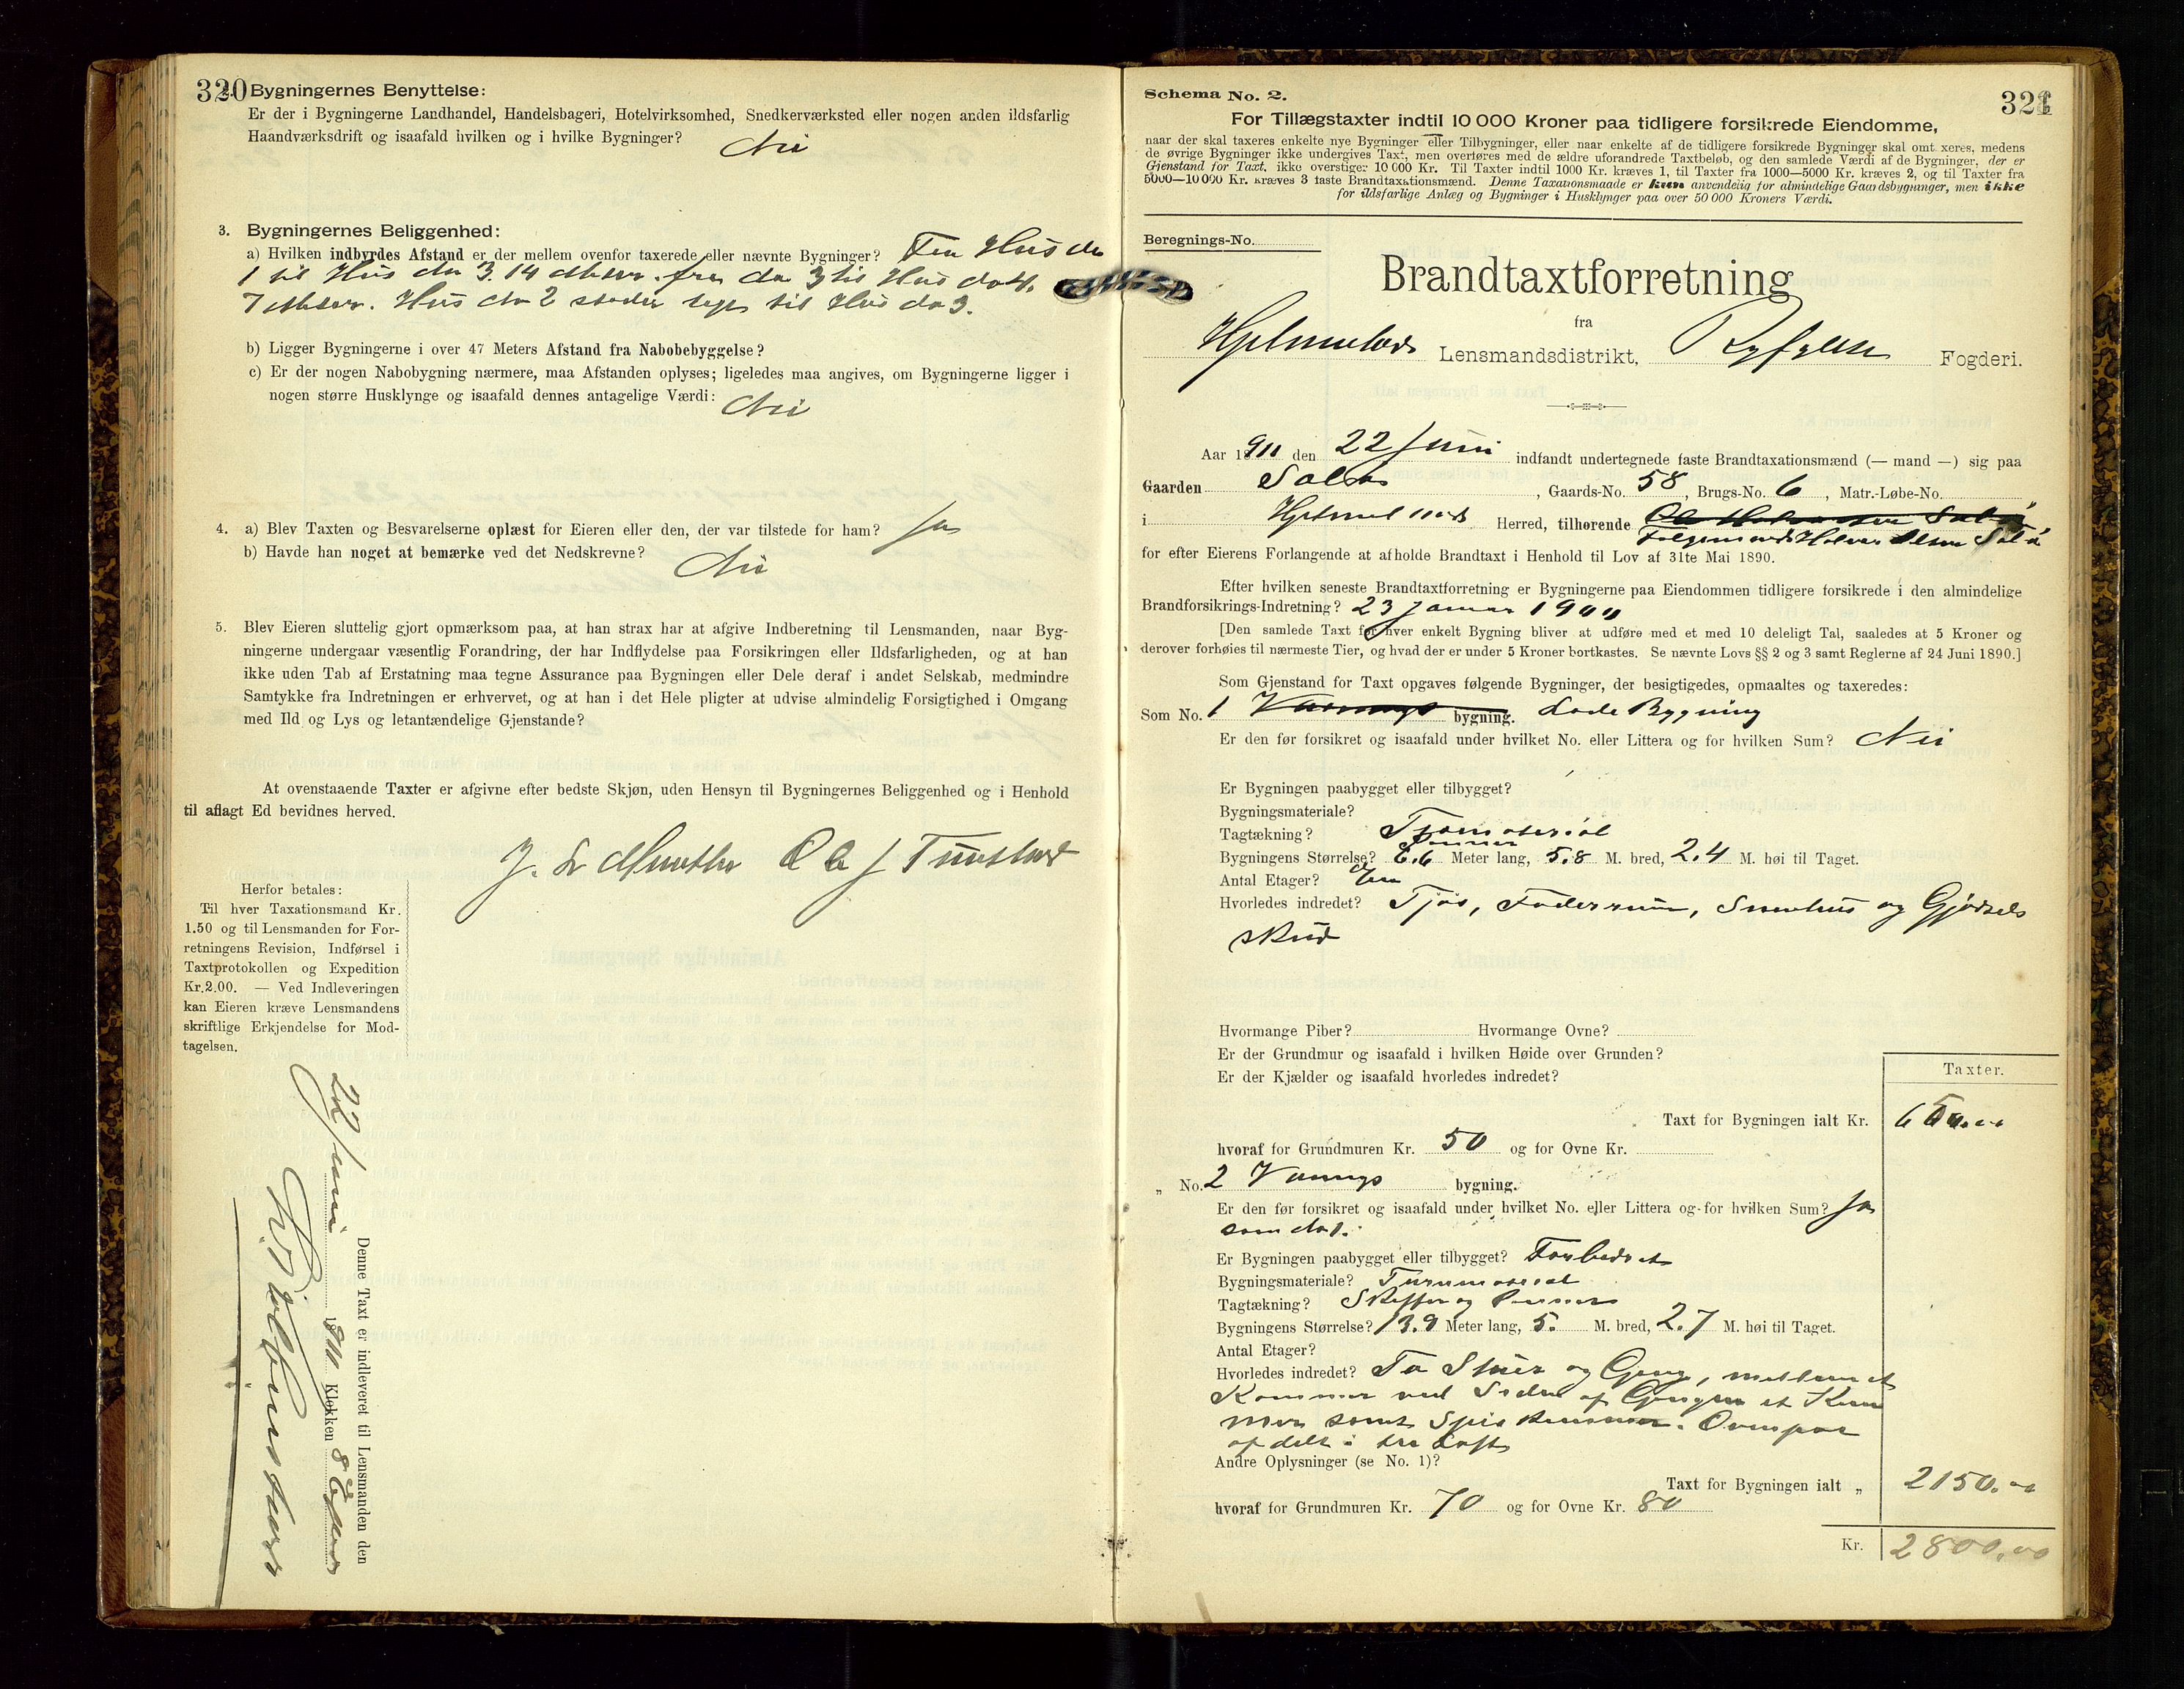 320 Bygningernes Benyttelse:
Er der i Bygningerne Landhandel, Handelsbageri, Hotelvirksomhed, Snedkerværksted eller nogen anden ildsfarlig
Haandværksdrift og isaafald hvilken og i hvilke Bygninger? Nei
3. Bygningernes Beliggenhed:
a) Hvilken indbyrdes Afstand er der mellem ovenfor taxerede eller nævnte Bygninger? Fra Hus do
1 til Hus do 3. 14 Meter. fra do 3 til Hus do 4.
7 Meter. Hus do 2 støder til Hus do 3.
b) Ligger Bygningerne i over 47 Meters Afstand fra Nabobebyggelse?
c) Er der nogen Nabobygning nærmere, maa Afstanden oplyses; ligeledes maa angives, om Bygningerne ligger i
nogen større Husklynge og isaafald dennes antagelige Værdi: Nei
4. a) Blev Taxten og Besvarelserne oplæst for Eieren eller den, der var tilstede for ham? Ja
b) Havde han noget at bemærke ved det Nedskrevne? Nei
5. Blev Eieren sluttelig gjort opmærksom paa, at han strax har at afgive Indberetning til Lensmanden, naar Byg-
ningerne undergaar væsentlig Forandring, der har Indflydelse paa Forsikringen eller Ildsfarligheden, og at han
ikke uden Tab af Erstatning maa tegne Assurance paa Bygningen eller Dele deraf i andet Selskab, medmindre
Samtykke fra Indretningen er erhvervet, og at han i det Hele pligter at udvise almindelig Forsigtighed i Omgang
med Ild og Lys og letantændelige Gjenstande?
At ovenstaaende Taxter er afgivne efter bedste Skjøn, uden Hensyn til Bygningernes Beliggenhed og i Henhold
til aflagt Ed bevidnes herved.
Herfor betales:
Til hver Taxationsmand Kr.
1.50 og til Lensmanden for For-
retningens Revision, Indførsel i
Taxtprotokollen og Expedition
Kr. 2.00. — Ved Indleveringen
kan Eieren kræve Lensmandens
skriftlige Erkjendelse for Mod-
tagelsen.
Denne Taxt er indleveret til Lensmanden den
22 Juni 1911 Klokken 8
Schema No. 2. 321
For Tillægstaxter indtil 10 000 Kroner paa tidligere forsikrede Eiendomme,
naar der skal taxeres enkelte nye Bygninger eller Tilbygninger, eller naar enkelte af de tidligere forsikrede Bygninger skal omtaxeres, medens
de øvrige Bygninger ikke undergives Taxt, men overføres med de ældre uforandrede Taxtbeløb, og den samlede Værdi af de Bygninger, der er
Gjenstand for Taxt, ikke overstiger 10 000 Kr. Til Taxter indtil 1000 Kr. kræves 1, til Taxter fra 1000—5000 Kr. kræves 2, og til Taxter fra
5000—10 000 Kr. kræves 3 faste Brandtaxationsmænd. Denne Taxationsmaade er kun anvendelig for almindelige Gaardsbygninger, men ikke
for ildsfarlige Anlæg og Bygninger i Husklynger paa over 50 000 Kroners Værdi.
Beregnings-No.
Brandtaxtforretning
fra
Hjelmelands Lensmandsdistrikt, Ryfylke Fogderi.
Aar 1911 den 22 Juni indfandt undertegnede faste Brandtaxationsmænd (— mand —) sig paa
Gaarden , Gaards-No. 58, Brugs-No. 6, Matr.-Løbe-No.
i Hjelmelands Herred, tilhørende
for efter Eierens Forlangende at afholde Brandtaxt i Henhold til Lov af 31te Mai 1890.
Efter hvilken seneste Brandtaxtforretning er Bygningerne paa Eiendommen tidligere forsikrede i den almindelige
Brandforsikrings-Indretning? 23 Januar
[Den samlede Taxt for hver enkelt Bygning bliver at udføre med et med 10 deleligt Tal, saaledes at 5 Kroner og
derover forhøies til nærmeste Tier, og hvad der er under 5 Kroner bortkastes. Se nævnte Lovs §§ 2 og 3 samt Reglerne af 24 Juni 1890.]
Som Gjenstand for Taxt opgaves følgende Bygninger, der besigtigedes, opmaaltes og taxeredes:
Som No. 1 Vaanings bygning. Løde Bygning
Er den før forsikret og isaafald under hvilket No. eller Littera og for hvilken Sum? Nei
Er Bygningen paabygget eller tilbygget?
Bygningsmateriale?
Tagtækning? Træmaterial
Bygningens Størrelse? 6.6 Meter lang, 5.8 M. bred, 2.4 M. høi til Taget.
Antal Etager? Een
Hvorledes indredet? Fjøs, Foderrum, Smalehus og Gjødsels
skur
Hvormange Piber? Hvormange Ovne?
Er der Grundmur og isaafald i hvilken Høide over Grunden?
Er der Kjælder og isaafald hvorledes indredet?
Taxter.
Taxt for Bygningen ialt Kr. 650.00
hvoraf for Grundmuren Kr. 50 og for Ovne Kr.
„ No. 2 Vaanings bygning.
Er den før forsikret og isaafald under hvilket No. eller Littera og for hvilken Sum? Ja
som do 1.
Er Bygningen paabygget eller tilbygget? Forbedret
Bygningsmateriale? Træmaterial
Tagtækning? Skiffer og Panner
Bygningens Størrelse? 13.9 Meter lang, 5. M. bred, 2.7 M. høi til Taget.
Antal Etager?
Hvorledes indredet? To Stuer og Gang, mellem et
Kammer ved Siden af Gangen et Kam
mer samt Spiskammer. Ovenpaa
afdelt i tre Loft
Andre Oplysninger (se No. 1)?
Taxt for Bygningen ialt „ 2150.00
hvoraf for Grundmuren Kr. 70 og for Ovne Kr. 80
Kr. 2800.00